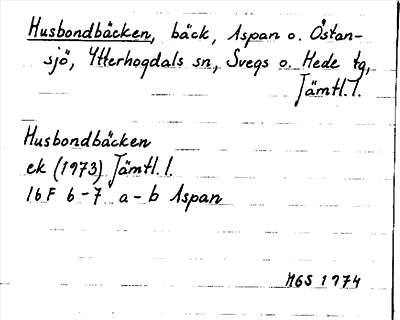 Husbondbäcken, bäck, Aspan o. Östan-
sjö, Ytterhogdals sn, Svegs o. Hede tg,
Jämtl. l.
Husbondbäcken
ek (1973) Jämtl. l.
16 F 6-7 a-b Aspan
MGS 1974